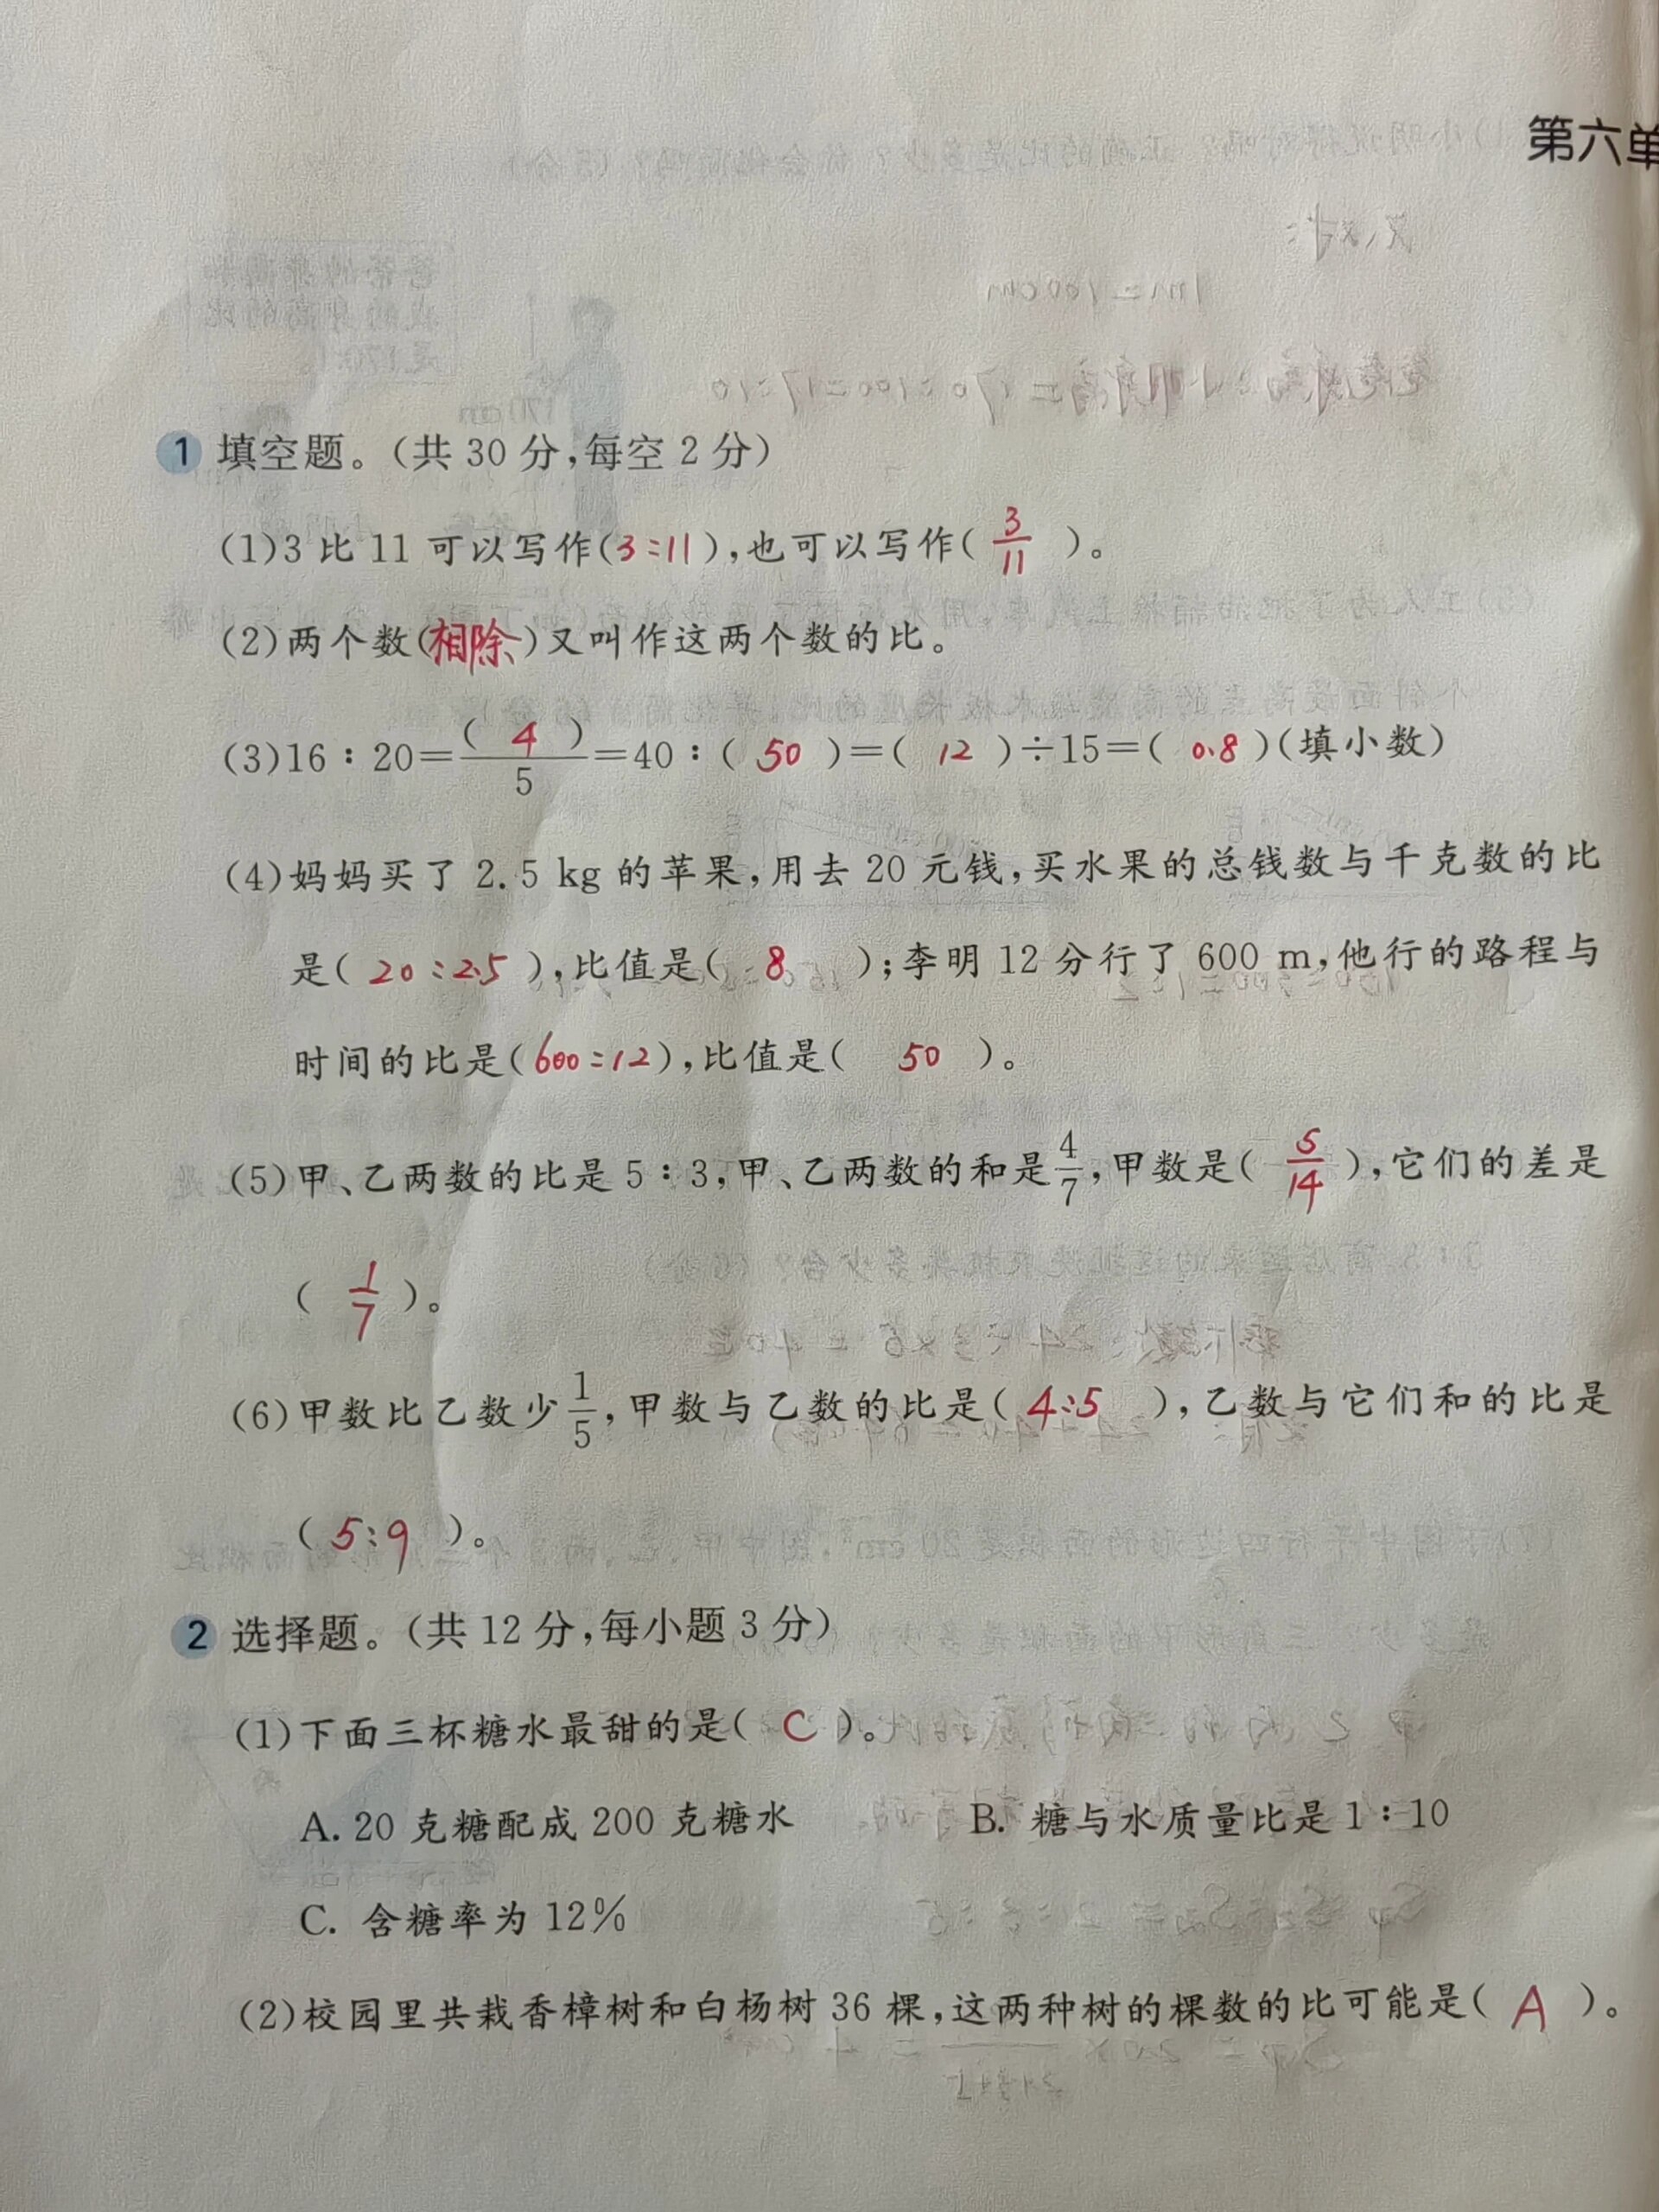 第六单
1 填空题。(共 30 分,每空 2 分)
(1)3 比 11 可以写作(3:11),也可以写作( 3/11 )。
(2)两个数(相除)又叫作这两个数的比。
(3)16∶20=( 4 )/5=40∶( 50 )=( 12 )÷15=( 0.8 )(填小数)
(4)妈妈买了 2.5 kg 的苹果,用去 20 元钱,买水果的总钱数与千克数的比
是( 20:2.5 ),比值是( 8 );李明 12 分行了 600 m,他行的路程与
时间的比是(600:12),比值是( 50 )。
(5)甲、乙两数的比是 5∶3,甲、乙两数的和是4/7,甲数是( 5/14 ),它们的差是
( 1/7 )。
(6)甲数比乙数少1/5,甲数与乙数的比是( 4:5 ),乙数与它们和的比是
( 5:9 )。
2 选择题。(共 12 分,每小题 3 分)
(1)下面三杯糖水最甜的是( C )。
A. 20 克糖配成 200 克糖水 B. 糖与水质量比是 1∶10
C. 含糖率为 12%
(2)校园里共栽香樟树和白杨树 36 棵,这两种树的棵数的比可能是( A )。